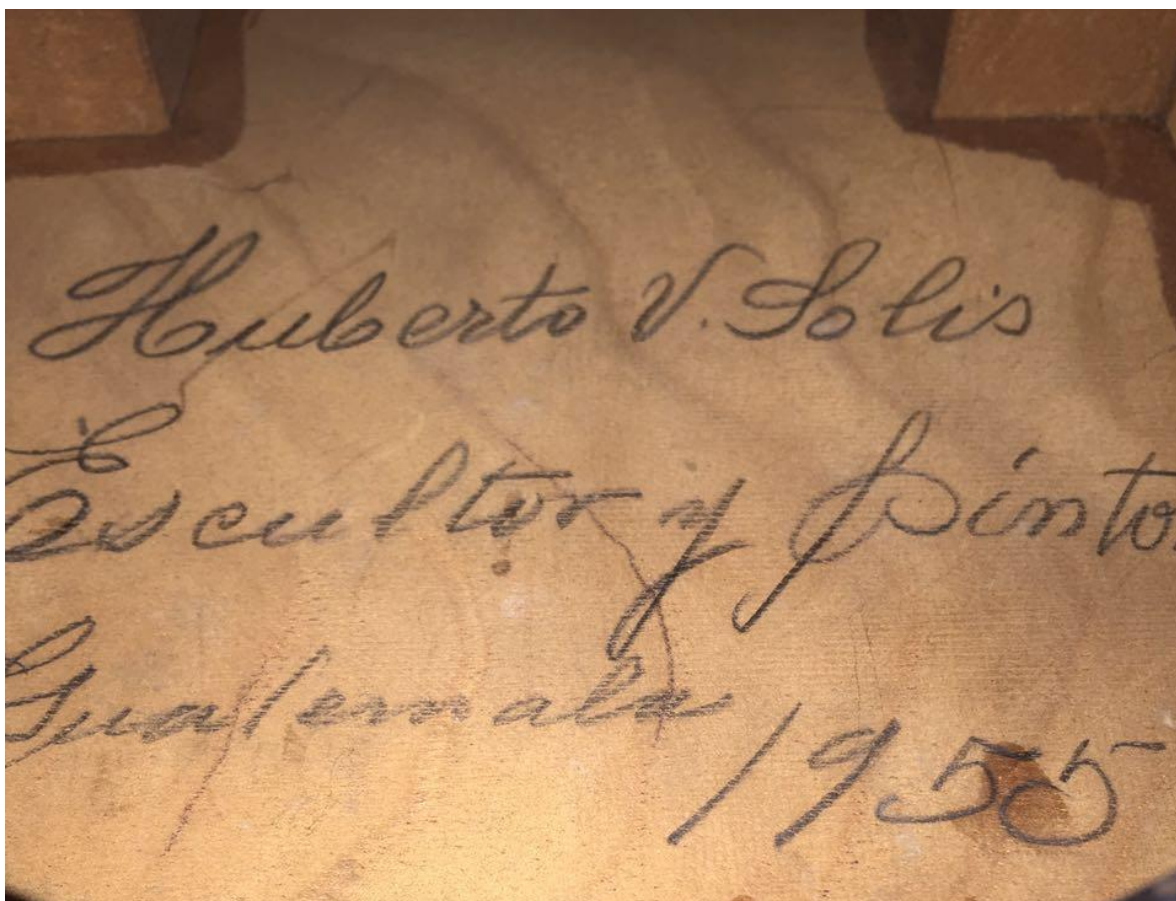 Huberto V. Solis
Escultor y pinto
Guatemala
1955